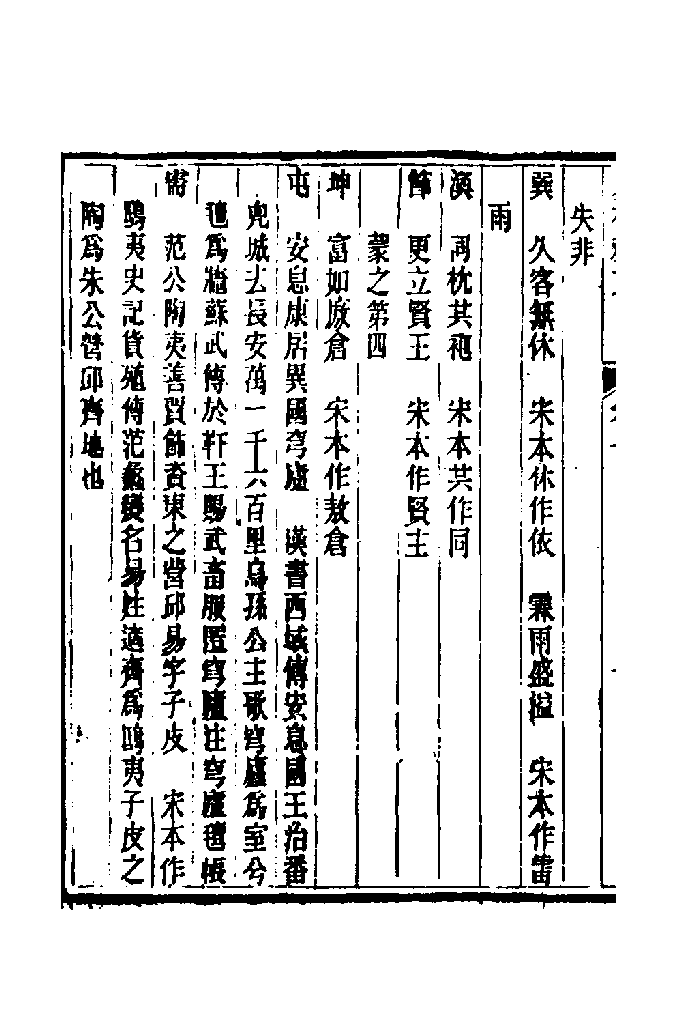 失非
巽　久客無休　宋本休作依　霖雨盛溢　宋本作雷
雨
渙　同枕共袍　宋本共作同
節　更立賢王　宋本作賢主
蒙之第四
坤　富如厫倉　宋本作敖倉
屯　安息康居異國穹廬　漢書西域傳安息國王治番
兜城去長安萬一千六百里烏孫公主歌穹廬爲室兮
氊爲牆蘇武傳於靬王賜武畜服匿穹廬注穹廬氊帳
需　范公陶夷善賈飾資東之營邱易字子皮　宋本作
鴟夷史記貨殖傳范蠡變名易姓適齊爲鴟夷子皮之
陶爲朱公營邱齊地也